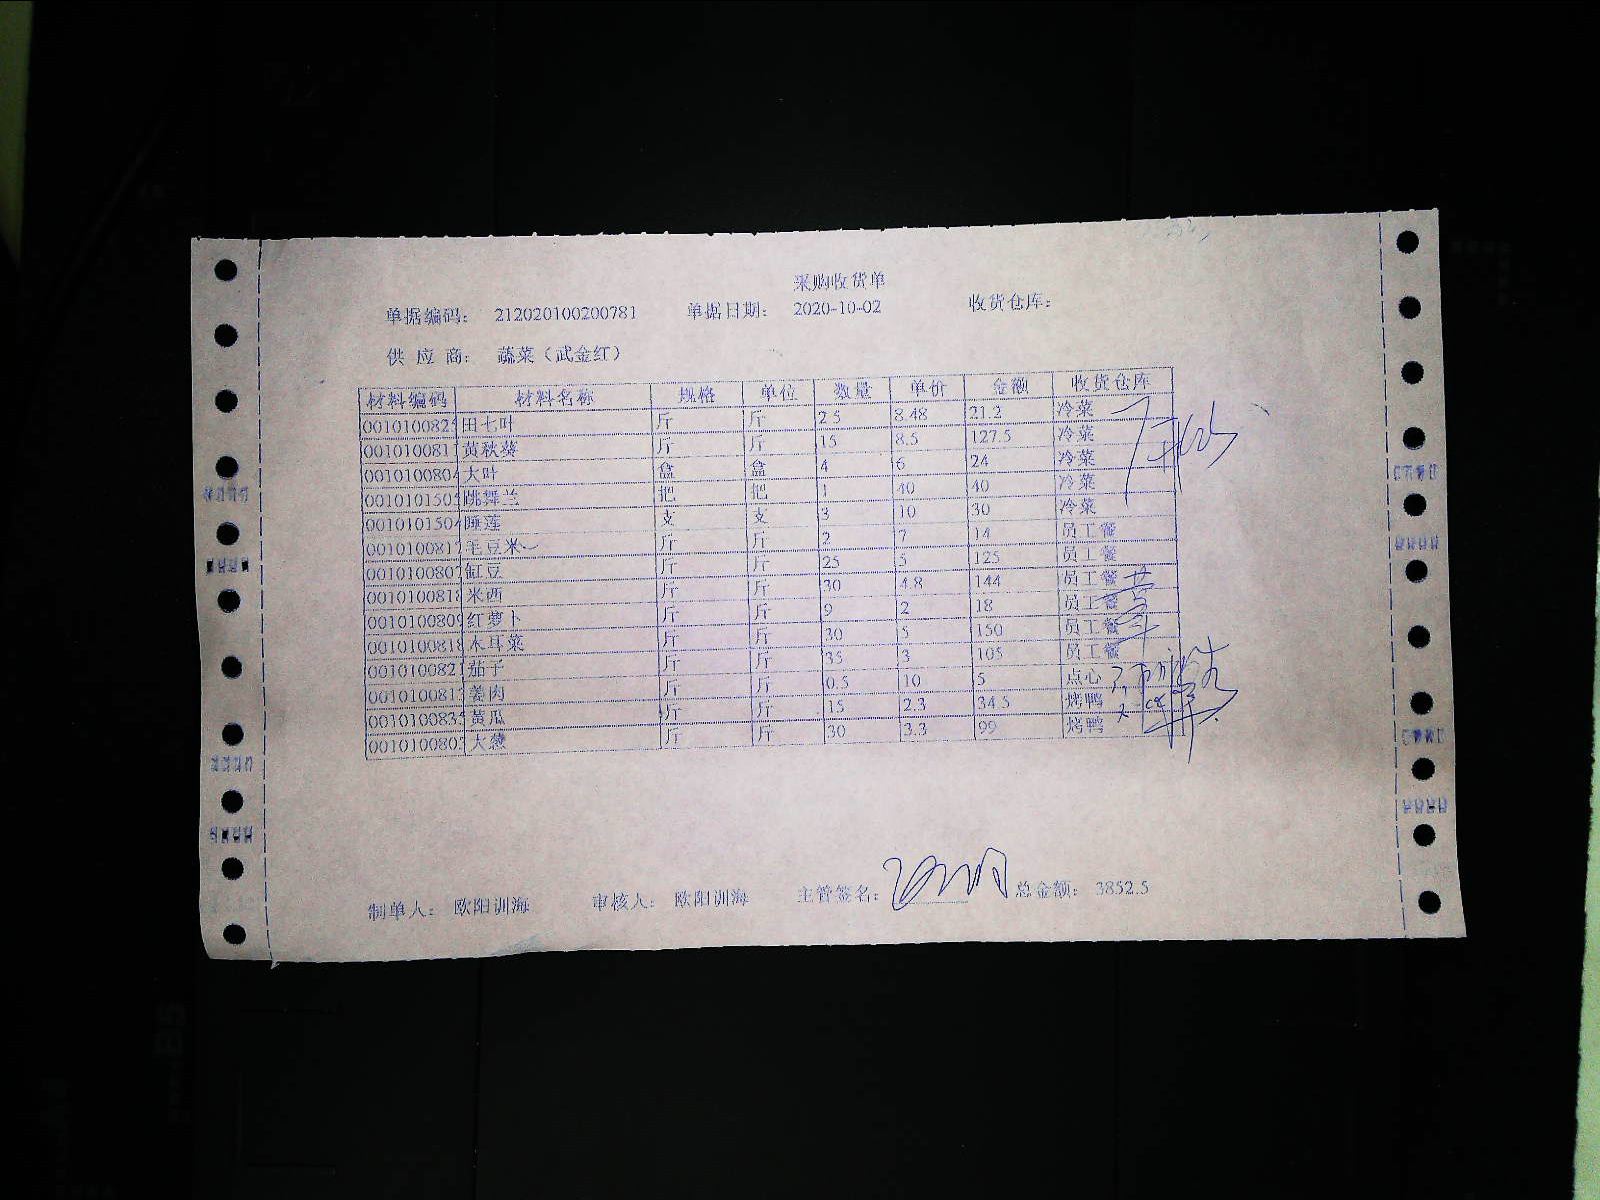 采购收货单
单据编码： 212020100200781 单据日期： 2020-10-02 收货仓库：
供 应 商： 蔬菜（武金红）
材料编码 材料名称 规格 单位 数量 单价 金额 收货仓库
0010100825 田七叶 斤 斤 2.5 8.48 21.2 冷菜
001010081 黄秋葵 斤 斤 15 8.5 127.5 冷菜
0010100804 大叶 盒 盒 4 6 24 冷菜
0010101505 跳舞兰 把 把 1 40 40 冷菜
0010101504 睡莲 支 支 3 10 30 冷菜
0010100817 毛豆米 斤 斤 2 7 14 员工餐
0010100807 缸豆 斤 斤 25 5 125 员工餐
0010100818 米西 斤 斤 30 4.8 144 员工餐
0010100809 红萝卜 斤 斤 9 2 18 员工餐
0010100818 木耳菜 斤 斤 30 5 150 员工餐
0010100821 茄子 斤 斤 35 3 105 员工餐
0010100813 姜肉 斤 斤 0.5 10 5 点心
0010100835 黄瓜 斤 斤 15 2.3 34.5 烤鸭
0010100803 大葱 斤 斤 30 3.3 99 烤鸭
制单人： 欧阳训海 审核人： 欧阳训海 主管签名： 总金额： 3852.5